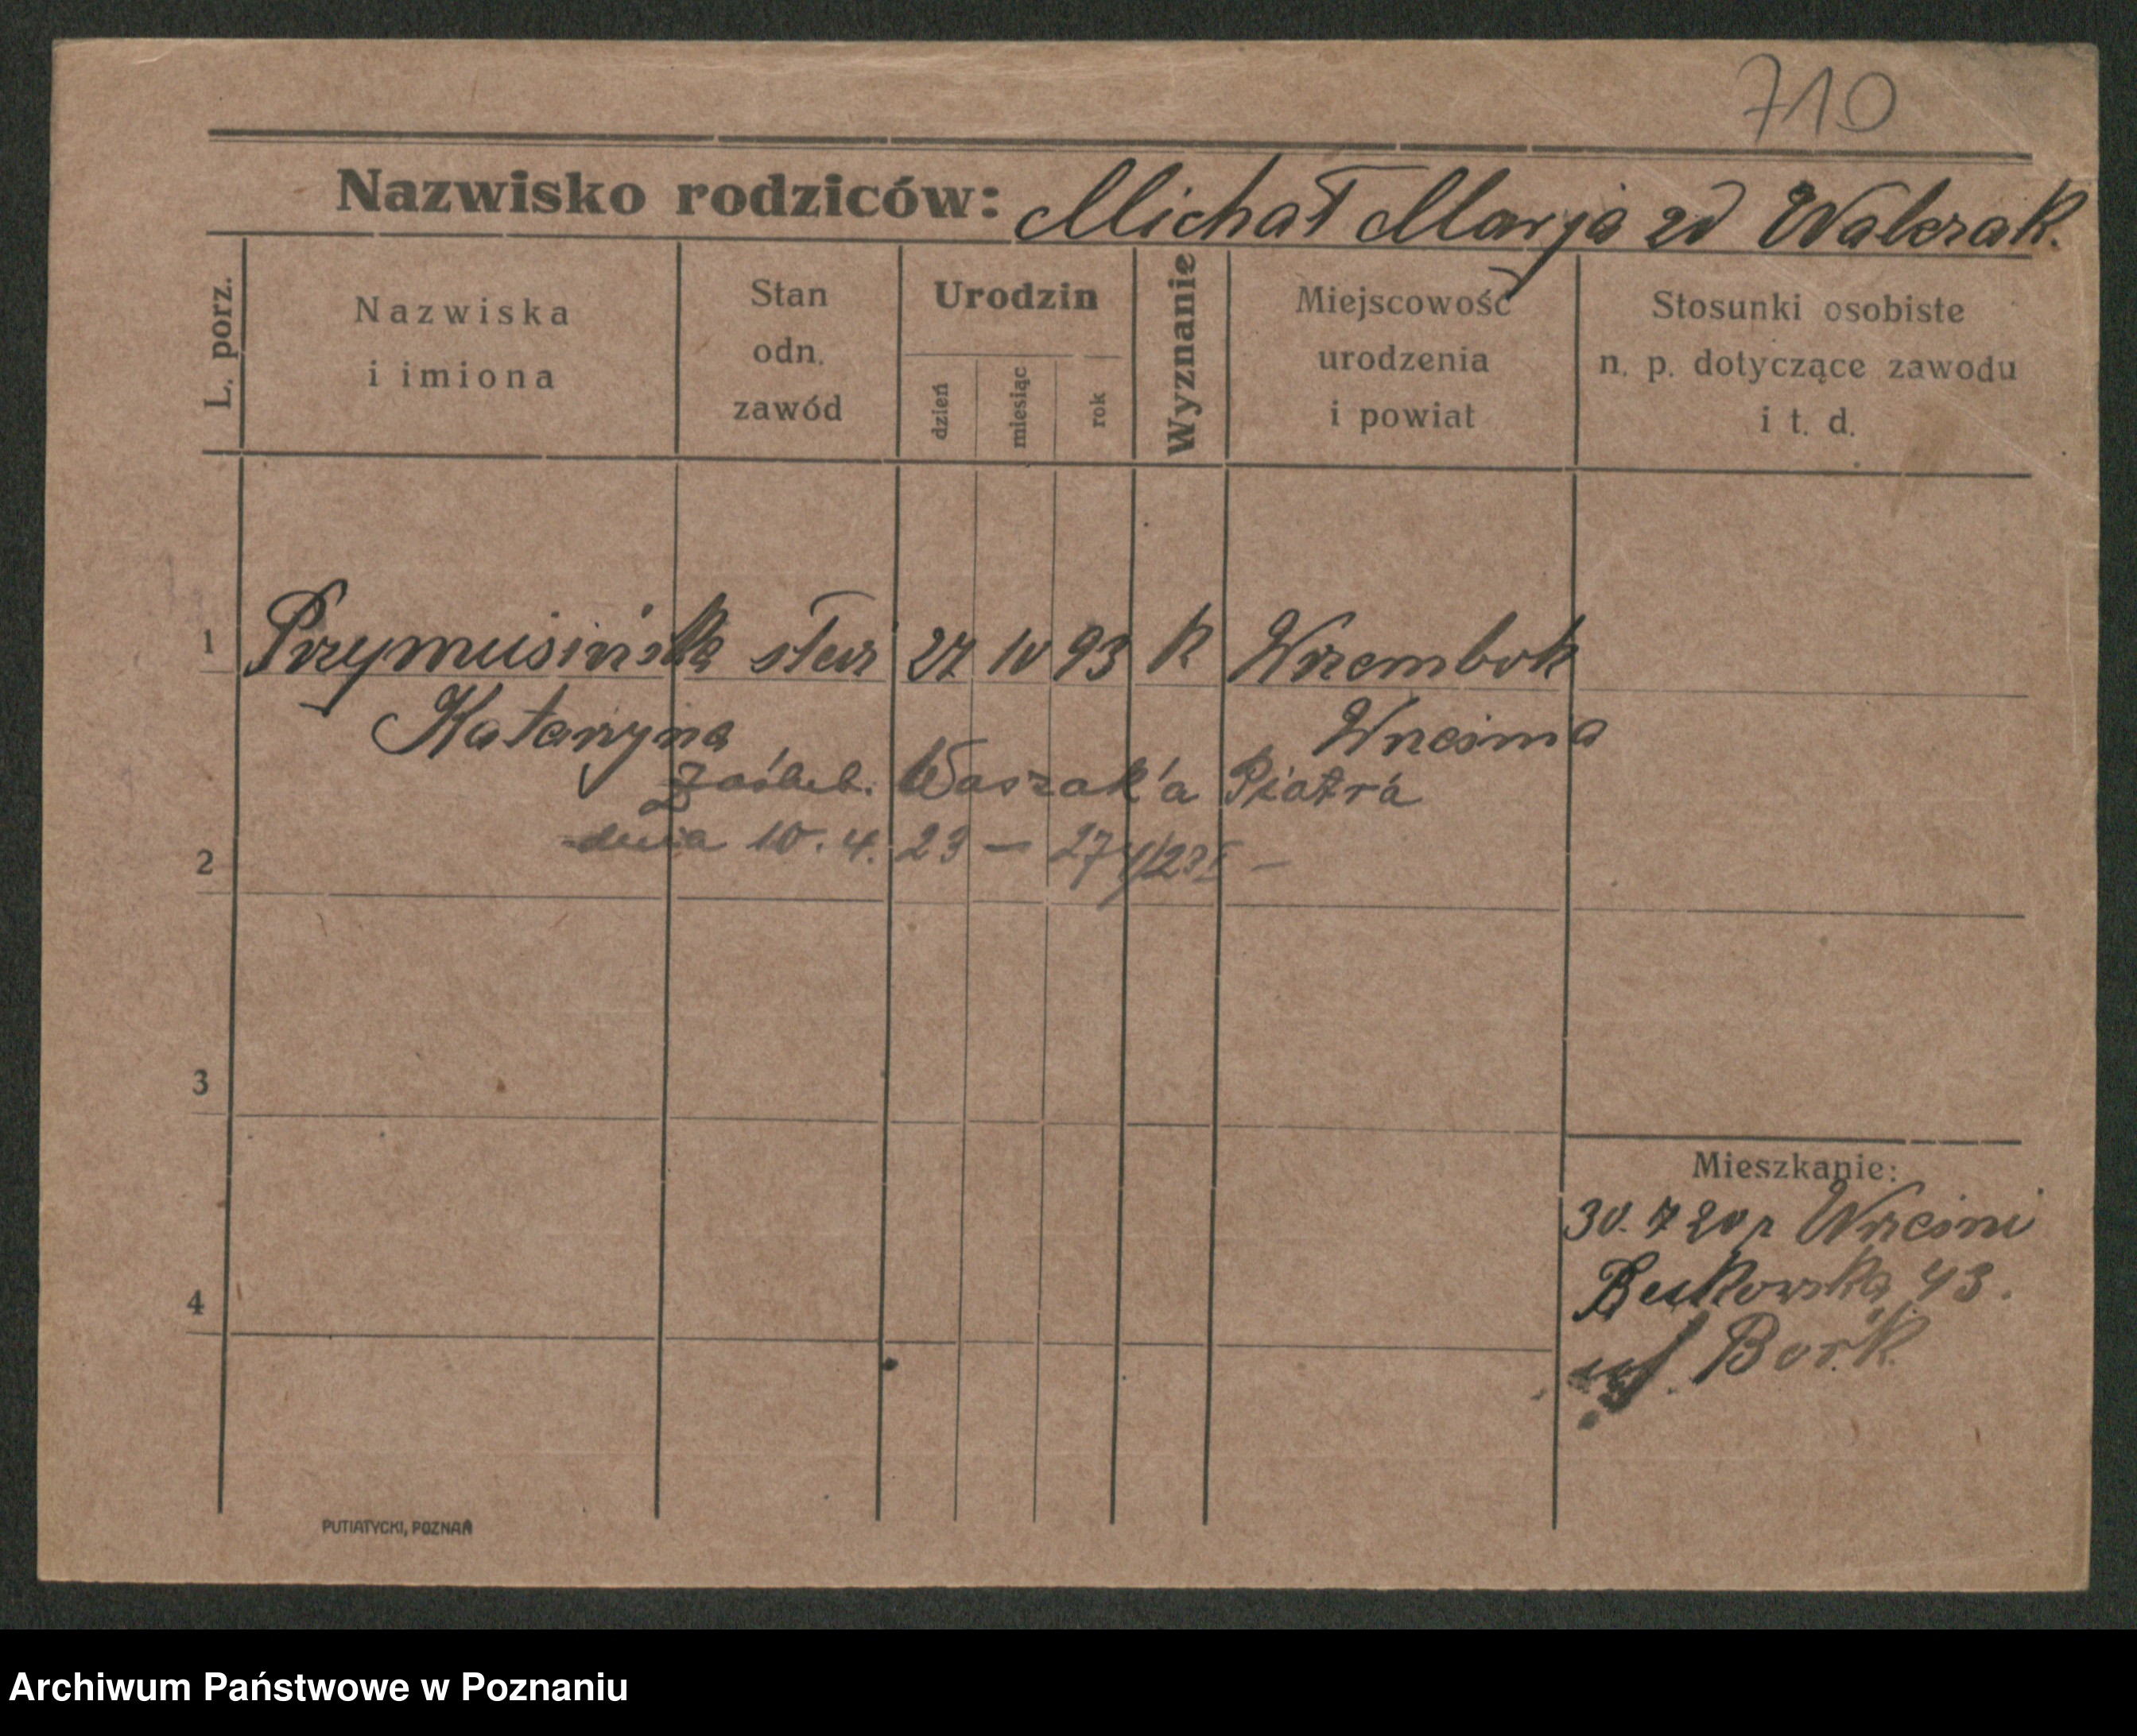 710
Nazwisko rodziców: Michał Marja zd Walczak.
L. porz.
Nazwiska
i imiona
Stan
odn.
zawód
Urodzin
dzień
miesiąc
rok
Wyznanie
Miejscowość
urodzenia
i powiat
Stosunki osobiste
n. p. dotyczące zawodu
i t. d.
1 Przymusińska służ 27 10 93 K
Katarzyna Września
zaślub. Waszak'a Piotra
dnia 10. 4. 23 —
2
3
4
Mieszkanie:
30. 7 20 r Wrześni
Bukowska 43.
PUTIATYCKI, POZNAŃ
Archiwum Państwowe w Poznaniu